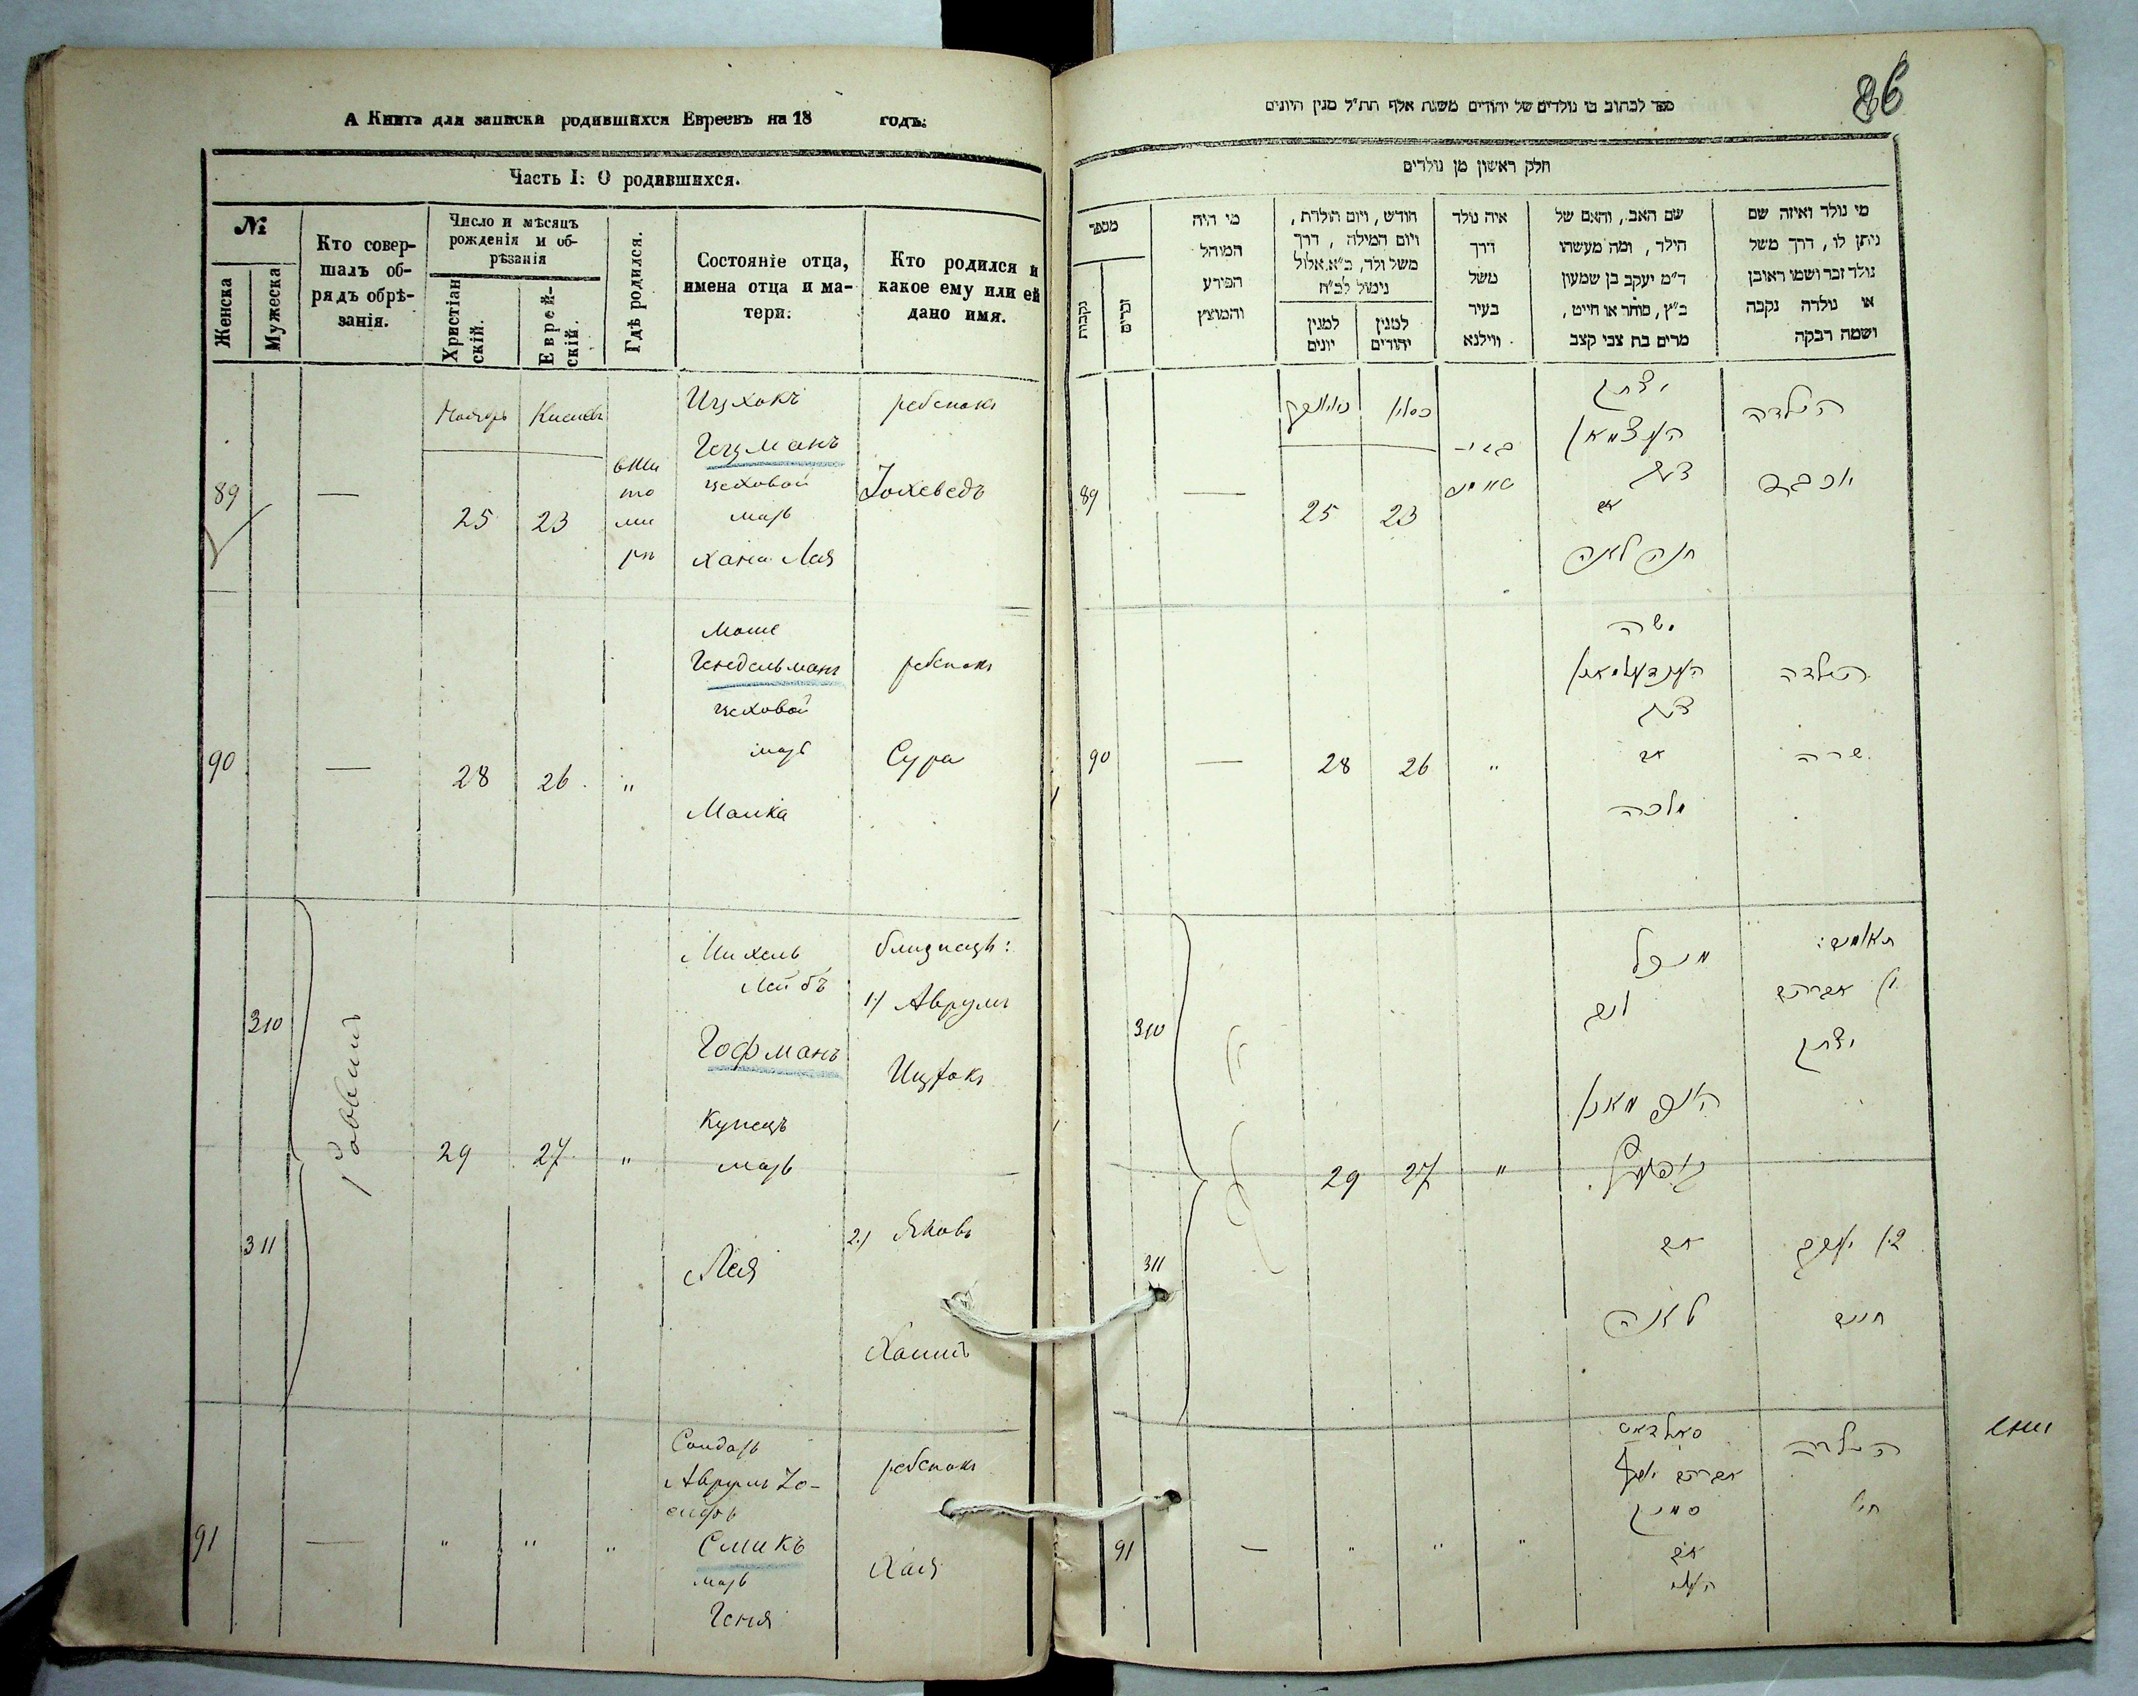 А Книга для записки родившихся Евреевъ на 18 годъ.
Часть I: О родившихся.
№
Женска
Мужеска
Кто совер-
шалъ об-
рядъ обрѣ-
занія.
Число и мѣсяцъ
рожденія и об-
рѣзанія
Христіан
скій.
Еврей-
скій.
Гдѣ родился.
Состояніе отца,
имена отца и ма-
тери.
Кто родился и
какое ему или ей
дано имя.
89
—
Ноябрь
25
Кислевъ
23
вжи
то
ми
рѣ
Ицхокъ
Гецманъ
цеховой
мать
Хана Лая
ребенокъ
Іохеведъ
90
—
28
26
"
Моше
Гендельманъ
цеховой
мать
Малка
ребенокъ
Сура
310
311
Раввинъ
29
27
"
Михель
Лейбъ
Гофманъ
Купецъ
мать
Лая
близнецы:
1) Аврумъ
Ицхокъ
2) Яковъ
Хаимъ
91
—
"
"
"
Солдатъ
Аврумъ Іо-
сифъ
Смикъ
мать
Геня
ребенокъ
Хая
86
ספר לכתוב בו נולדים של יהודים משנת אלף תת״ל מנין היונים
חלק ראשון מן נולדים
מי נולד ואיזה שם
ניתן לו, דרך משל
נולד זכר ושמו ראובן
או נולדה נקבה
ושמה רבקה
שם האב, והאם של
הילד, ומה מעשהו
ד״מ יעקב בן שמעון
כ״ץ, סוחר או חייט,
מרים בת צבי קצב
איה נולד
דרך
משל
בעיר
ווילנא
חודש, ויום הולדת,
ויום המילה, דרך
משל ולד, כ״א אלול
נימול לכ״ח
למנין
יהודים
למנין
יונים
מי היה
המוהל
הפורע
והמוצץ
מספר
זכרים
נקבות
הילדה
יוכבד
יצחק
העצמאן
צעך
אם
חנה לאה
כסלו
23
25
—
89
הילדה
שרה
משה
הענדעלמאן
צעך
אם
מלכה
"
26
28
—
90
תאומים:
1) אברהם
יצחק
2) יעקב
חיים
מיכל
ליב
האפמאן
אם
לאה
"
27
29
310
311
הילדה
חי׳
סאלדאט
אברהם יוסף
סמיק
אם
העני
"
"
"
—
91